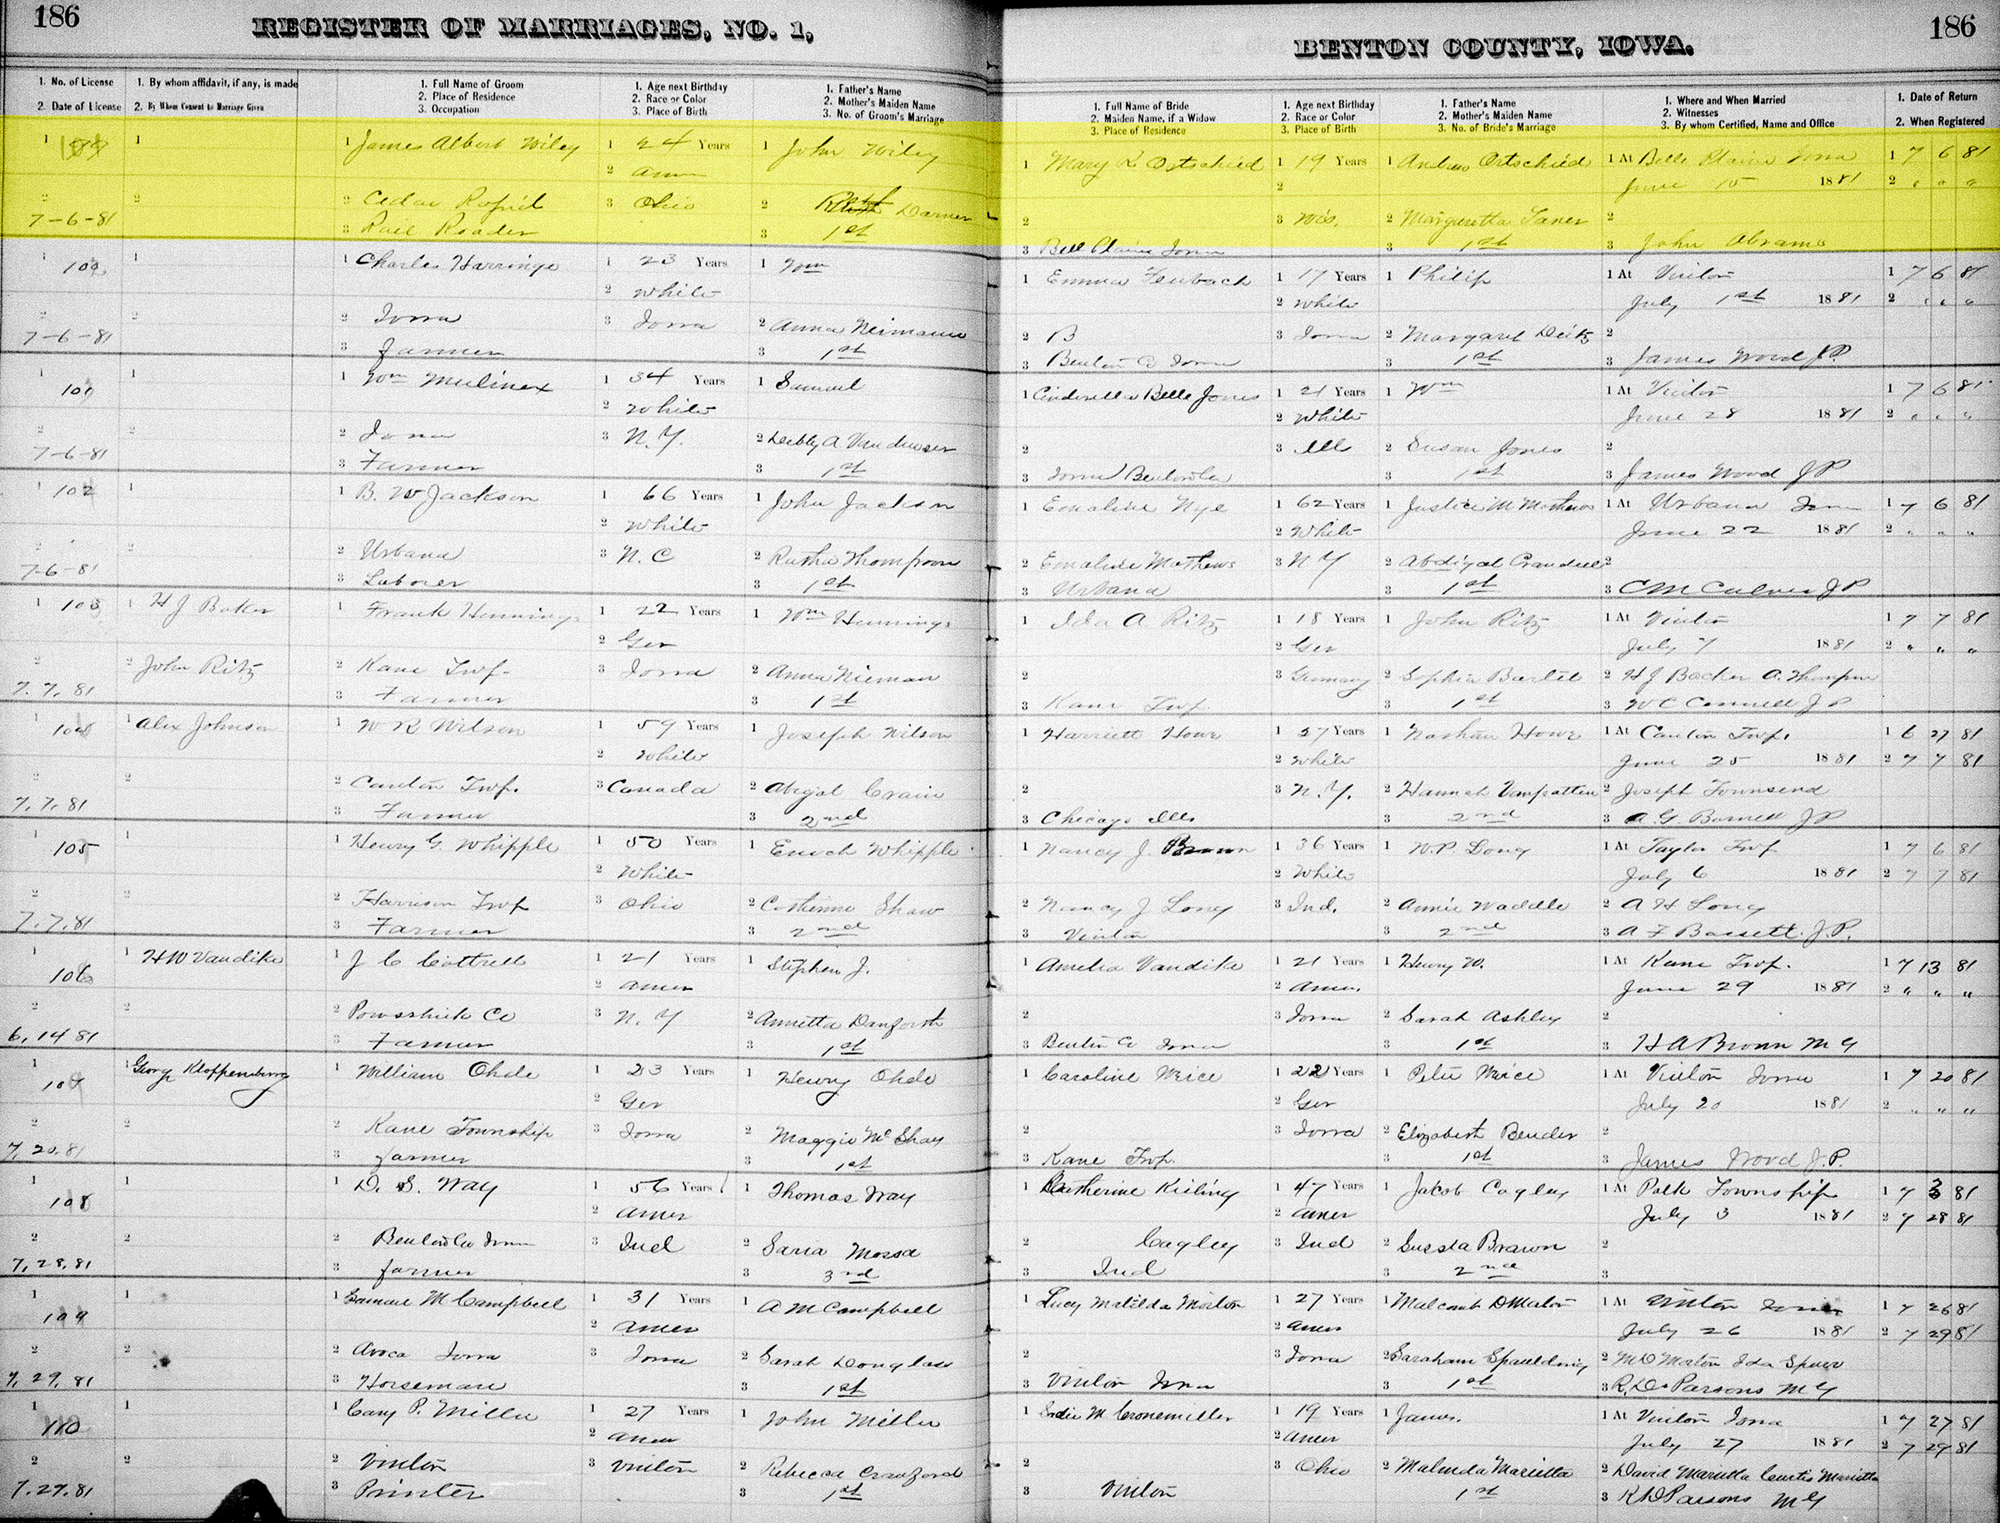 186
REGISTER OF MARRIAGES, NO. 1,
BENTON COUNTY, IOWA.
186
1. No. of License
2. Date of License
1. By whom affidavit, if any, is made
2. By Whom Consent to Marriage Given
1. Full Name of Groom
2. Place of Residence
3. Occupation
1. Age next Birthday
2. Race or Color
3. Place of Birth
1. Father's Name
2. Mother's Maiden Name
3. No. of Groom's Marriage
1. Full Name of Bride
2. Maiden Name, if a Widow
3. Place of Residence
1. Age next Birthday
2. Race or Color
3. Place of Birth
1. Father's Name
2. Mother's Maiden Name
3. No. of Bride's Marriage
1. Where and When Married
2. Witnesses
3. By whom Certified, Name and Office
1. Date of Return
2. When Registered
1 1 1 James Albert Wiley 1 24 Years 1 John Wiley 1 Mary K Ostschied 1 19 Years 1 Andrew Ortschied 1 At Belle Plaine Iowa 1 7 6 81
2 Amer 2 June 15 1881 2 " " "
2 7-6-81 2 2 Cedar Rapid 3 Ohio 2 Darner 2 3 Wis. 2 Margaretta Laner 2
3 Rail Roader 3 1st 3 Bell Plaine Iowa 3 1st 3 John Abrams
1 1 1 Charles Harringe 1 23 Years 1 Wm 1 Emma Feubach 1 17 Years 1 Philip 1 At Vinton 1 7 6 81
2 White 2 White July 1st 1881 2 " " "
2 7-6-81 2 2 Iowa 3 Iowa 2 Anna Neimann 2 B 3 Iowa 2 Margaret Deitz 2
3 Farmer 3 1st 3 Benton Co Iowa 3 1st 3 James Wood J.P.
1 1 1 Wm Mulinex 1 34 Years 1 Samuel 1 Cinderella Belle Jones 1 21 Years 1 Wm 1 At Vinton 1 7 6 81
2 White 2 White June 28 1881 2 " " "
2 7-6-81 2 2 Iowa 3 N.Y. 2 A Vanduser 2 3 Ills 2 Susan Jones 2
3 Farmer 3 1st 3 Iowa Benton Co 3 1st 3 James Wood J P
1 102 1 1 B. W Jackson 1 66 Years 1 John Jackson 1 Emaline Nye 1 62 Years 1 Justice M Mathews 1 At Urbana Iowa 1 7 6 81
2 White 2 White June 22 1881 2 " " "
2 7-6-81 2 2 Urbana 3 N.C 2 Rutha Thompson 2 Emaline Mathews 3 N Y 2 Abdigal Crandell 2
3 Laborer 3 1st 3 Urbana 3 1st 3 C M Culver J P
1 103 1 H J Baker 1 Frank Hennings 1 22 Years 1 Wm Hennings 1 Ida A Ritz 1 18 Years 1 John Ritz 1 At Vinton 1 7 7 81
2 Ger 2 Ger July 7 1881 2 " " "
2 7.7.81 2 John Ritz 2 Kane Twp. 3 Iowa 2 Anna Nieman 2 3 Germany 2 Sophia Bartel 2 H J Backer A. Thompson
3 Farmer 3 1st 3 Kane Twp. 3 1st 3 W C Connell J P
1 104 1 Alex Johnson 1 W R Wilson 1 59 Years 1 Joseph Wilson 1 Harriett Howe 1 37 Years 1 Nathan Howe 1 At Canton Twp. 1 6 27 81
2 White 2 White June 25 1881 2 7 7 81
2 7.7.81 2 2 Canton Twp. 3 Canada 2 Abigal Crain 2 3 N.Y. 2 Hannah Vanpatten 2 Joseph Townsend
3 Farmer 3 2nd 3 Chicago Ills 3 2nd 3 A. G. Barnett J P
1 105 1 1 Henry G. Whipple 1 50 Years 1 Enoch Whipple 1 Nancy J. Brown 1 36 Years 1 W. P. Long 1 At Taylor Twp 1 7 6 81
2 White 2 White July 6 1881 2 7 7 81
2 7.7.81 2 2 Harrison Twp 3 Ohio 2 Shaw 2 Nancy J Long 3 Ind. 2 Annie Waddle 2 A H Long
3 Farmer 3 2nd 3 Vinton 3 2nd 3 A F Bassett. J.P.
1 106 1 H W Vandike 1 J C Cottrell 1 21 Years 1 Stephen J. 1 Amelia Vandike 1 21 Years 1 Henry W. 1 At Kane Twp. 1 7 13 81
2 Amer 2 Amer. June 29 1881 2 " " "
2 6.14.81 2 2 Poweshiek Co 3 N. Y 2 Annetta Danforth 2 3 Iowa 2 Sarah Ashley 2
3 Farmer 3 1st 3 Benton Co Iowa 3 1st 3 H A Brown M G
1 107 1 George Kloppenburg 1 William Ohde 1 23 Years 1 Henry Ohde 1 Caroline Weice 1 22 Years 1 Peter Weice 1 At Vinton Iowa 1 7 20 81
2 Ger 2 Ger July 20 1881 2 " " "
2 7.20.81 2 2 Kane Township 3 Iowa 2 Maggie McShay 2 3 Iowa 2 Elizabeth Bender 2
3 Farmer 3 1st 3 Kane Twp. 3 1st 3 James Wood J.P.
1 108 1 1 D. S. Way 1 56 Years 1 Thomas Way 1 Catherine Kieling 1 47 Years 1 Jakob Cagley 1 At Polk Township 1 7 3 81
2 Amer 2 Amer July 3 1881 2 7 28 81
2 7.28.81 2 2 Benton Co Iowa 3 Ind 2 Saria Mossa 2 Cagley 3 Ind 2 Sussta Brawn 2
3 Farmer 3 3rd 3 Ind 3 2nd 3
1 109 1 1 Samuel M Campbell 1 31 Years 1 A M Campbell 1 Lucy Matilda Morton 1 27 Years 1 Malcomb D Morton 1 At Vinton Iowa 1 7 26 81
2 Amer 2 Amer July 26 1881 2 7 29 81
2 7.29.81 2 2 Avoca Iowa 3 Iowa 2 Sarah Douglass 2 3 Iowa 2 Saraham Spaulding 2 M D Morton Ida Spencer
3 Horseman 3 1st 3 Vinton Iowa 3 1st 3 R. D. Parsons M G
1 110 1 1 Cary P. Miller 1 27 Years 1 John Miller 1 Sadie M Cronemiller 1 19 Years 1 James. 1 At Vinton Iowa 1 7 27 81
2 Amer 2 Amer July 27 1881 2 7 29 81
2 7.27.81 2 2 Vinton 3 Vinton 2 Rebecca Crawford 2 3 Ohio 2 Malinda Marietta 2 David Marietta Curtis Marietta
3 Printer 3 1st 3 Vinton 3 1st 3 R D Parsons M G